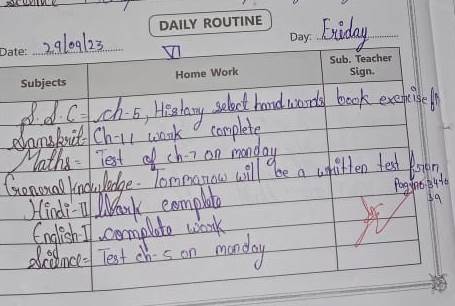 DAILY ROUTINE
Date: 29/09/23
VI
Day: Friday
Subjects
Home Work
Sub. Teacher
Sign.
S.S.C = ch-5, History select hand words book exercise
Sanskrit- Ch-11 work complete
Maths = Test of ch-7 on monday
General knowledge- Tommorow will be a written test from
Pag no 34 to
39
Hindi-II Work complete
English-I complete work
Science= Test ch-5 on monday